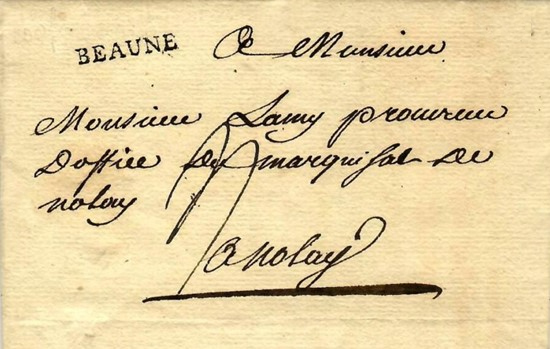 BEAUNE
A Monsieur
Monsieur Lamy procureur
Doffice du marquisat de
nolay
a nolay